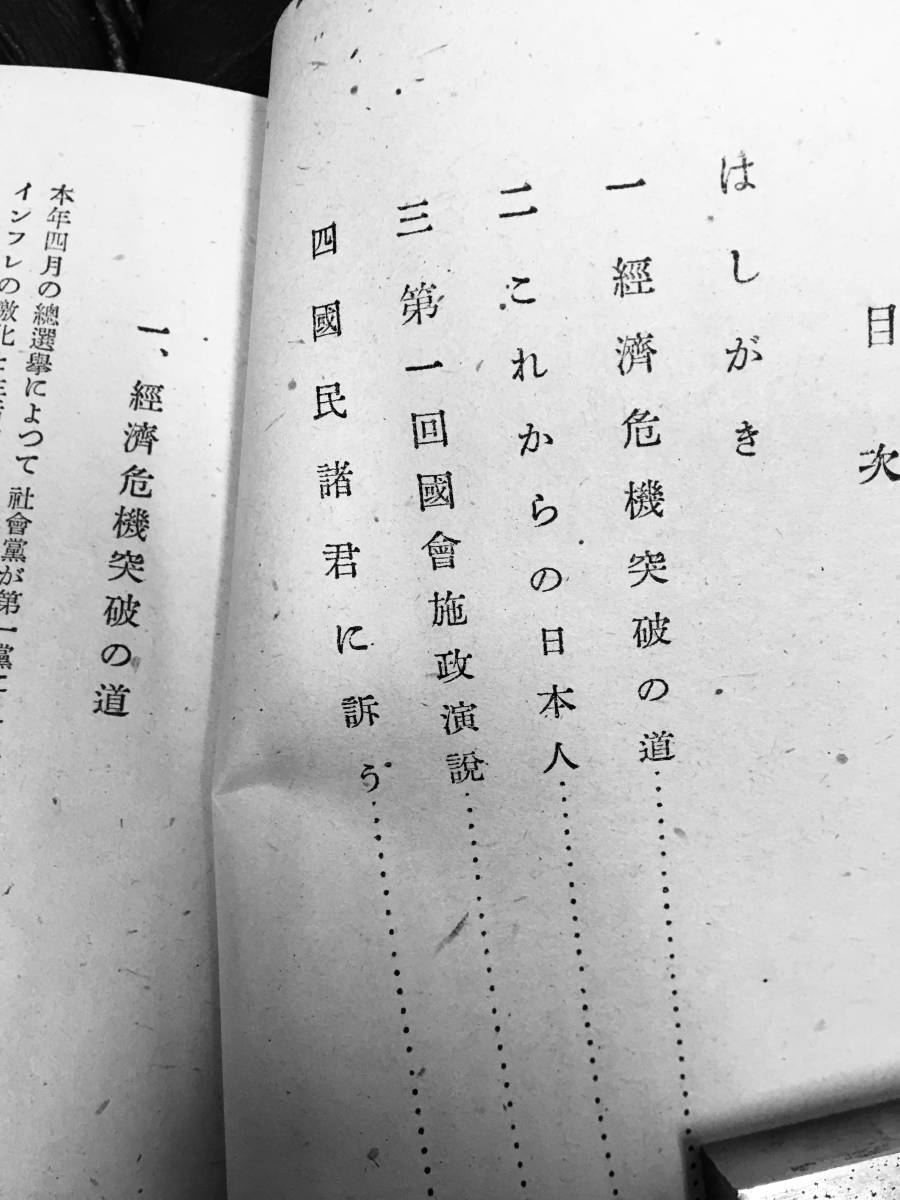 目次
はしがき
一 經濟危機突破の道
二 これからの日本人
三 第一回國會施政演說
四 國民諸君に訴う
一、經濟危機突破の道
本年四月の總選擧によつて社會黨が第一黨に
インフレの激化と